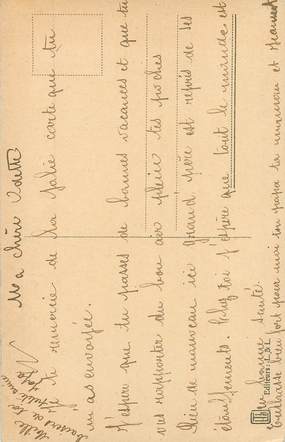 Ma chère Odette
Je te remercie de la jolie carte que tu
m'as envoyée.
J'espère que tu passes de bonnes vacances et que tu
vas rapporter du bon air plein tes poches
Rien de nouveau ici grand père est repris de ses
étouffements. Chez toi j'espère que tout le monde est
en bonne santé.
embrasse bien fort pour moi ton papa ta maman et
baisers de la